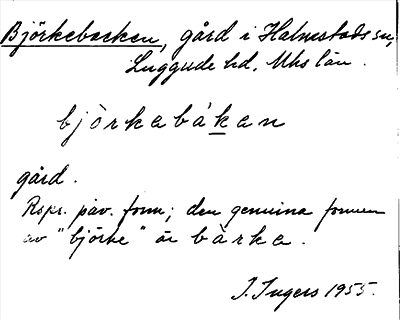 Björkebacken, gård i Halmstads sn,
Luggude hd, Mhs län.
bjòrkabákan
gård.
Rspr. påv. form; den genuina formen
av "björke" är bàrka.
I. Ingers 1955.